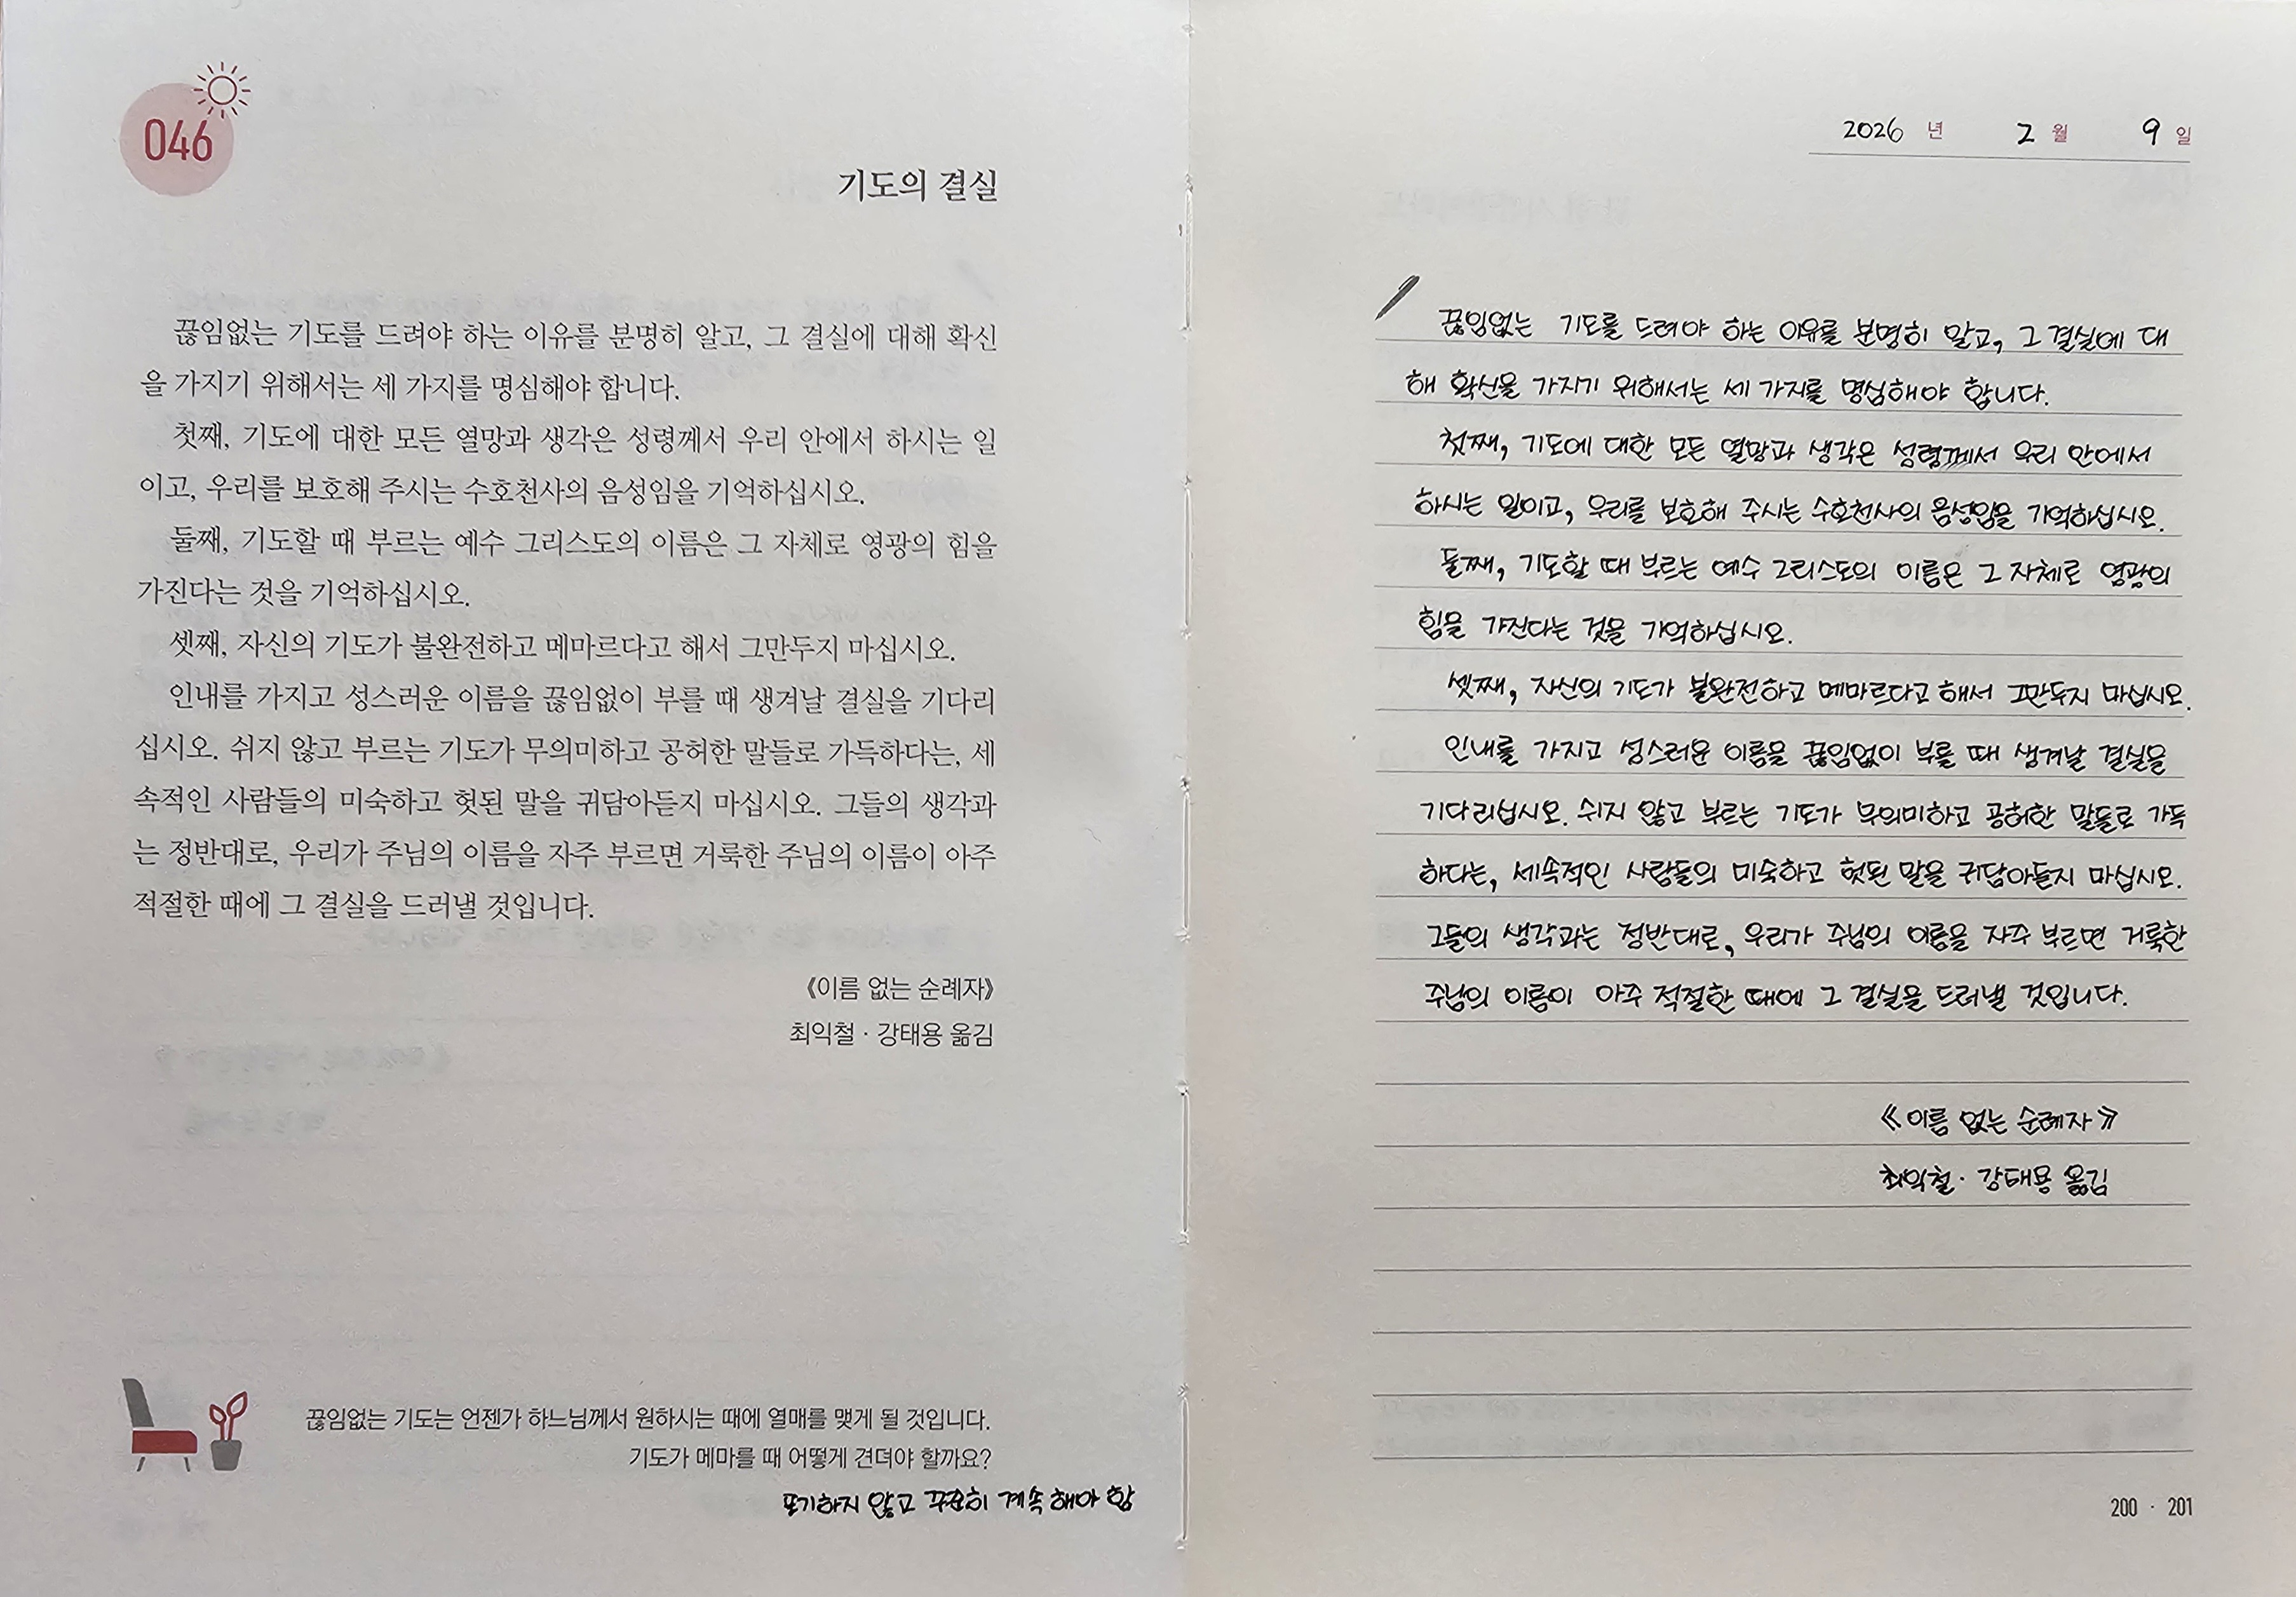 046
기도의 결실
끊임없는 기도를 드려야 하는 이유를 분명히 알고, 그 결실에 대해 확신
을 가지기 위해서는 세 가지를 명심해야 합니다.
첫째, 기도에 대한 모든 열망과 생각은 성령께서 우리 안에서 하시는 일
이고, 우리를 보호해 주시는 수호천사의 음성임을 기억하십시오.
둘째, 기도할 때 부르는 예수 그리스도의 이름은 그 자체로 영광의 힘을
가진다는 것을 기억하십시오.
셋째, 자신의 기도가 불완전하고 메마르다고 해서 그만두지 마십시오.
인내를 가지고 성스러운 이름을 끊임없이 부를 때 생겨날 결실을 기다리
십시오. 쉬지 않고 부르는 기도가 무의미하고 공허한 말들로 가득하다는, 세
속적인 사람들의 미숙하고 헛된 말을 귀담아듣지 마십시오. 그들의 생각과
는 정반대로, 우리가 주님의 이름을 자주 부르면 거룩한 주님의 이름이 아주
적절한 때에 그 결실을 드러낼 것입니다.
《이름 없는 순례자》
최익철 · 강태용 옮김
끊임없는 기도는 언젠가 하느님께서 원하시는 때에 열매를 맺게 될 것입니다.
기도가 메마를 때 어떻게 견뎌야 할까요?
포기하지 않고 꾸준히 계속 해야 함
2026 년 2 월 9 일
끊임없는 기도를 드려야 하는 이유를 분명히 알고, 그 결실에 대
해 확신을 가지기 위해서는 세 가지를 명심해야 합니다.
첫째, 기도에 대한 모든 열망과 생각은 성령께서 우리 안에서
하시는 일이고, 우리를 보호해 주시는 수호천사의 음성임을 기억하십시오.
둘째, 기도할 때 부르는 예수 그리스도의 이름은 그 자체로 영광의
힘을 가진다는 것을 기억하십시오.
셋째, 자신의 기도가 불완전하고 메마르다고 해서 그만두지 마십시오.
인내를 가지고 성스러운 이름을 끊임없이 부를 때 생겨날 결실을
기다리십시오. 쉬지 않고 부르는 기도가 무의미하고 공허한 말들로 가득
하다는, 세속적인 사람들의 미숙하고 헛된 말을 귀담아듣지 마십시오.
그들의 생각과는 정반대로, 우리가 주님의 이름을 자주 부르면 거룩한
주님의 이름이 아주 적절한 때에 그 결실을 드러낼 것입니다.
《이름 없는 순례자》
최익철 · 강태용 옮김
200 · 201